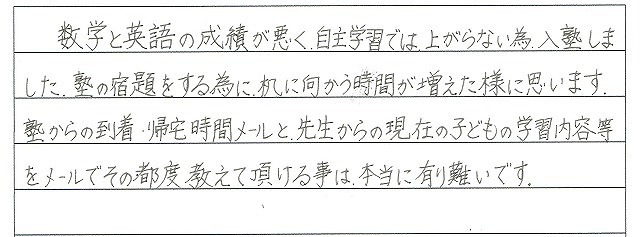 数学と英語の成績が悪く、自主学習では上がらない為、入塾しま
した。塾の宿題をする為に、机に向かう時間が増えた様に思います。
塾からの到着・帰宅時間メールと、先生からの現在の子どもの学習内容等
をメールでその都度、教えて頂ける事は、本当に有り難いです。